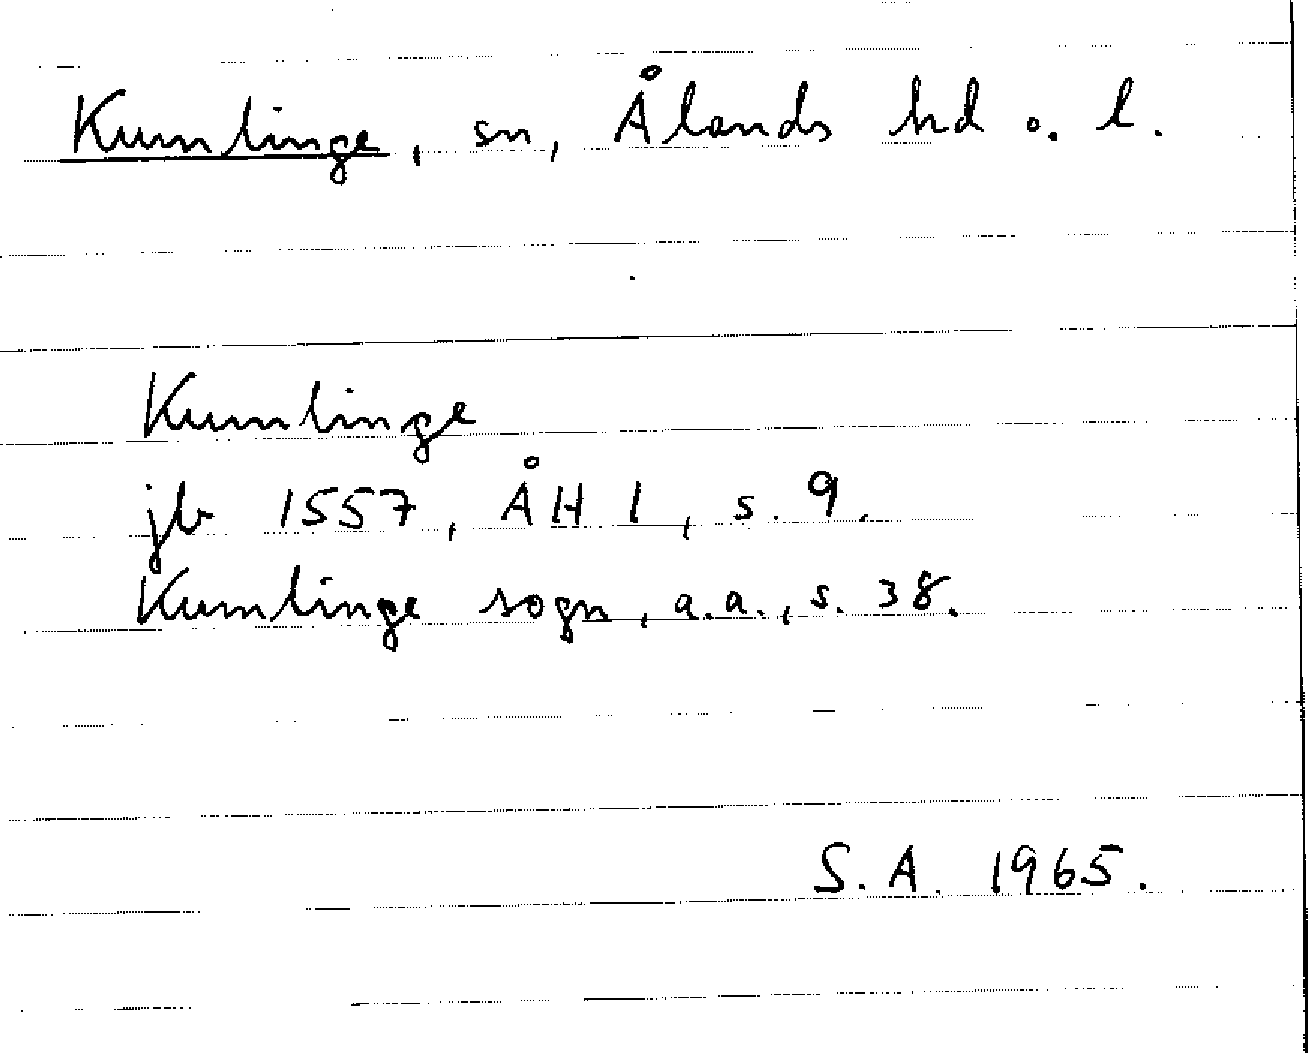 Kumlinge, sn, Ålands hd o. l.
Kumlinge
jb 1557, ÅH 1, s. 9.
Kumlinge sogn, a.a., s. 38.
S. A. 1965.